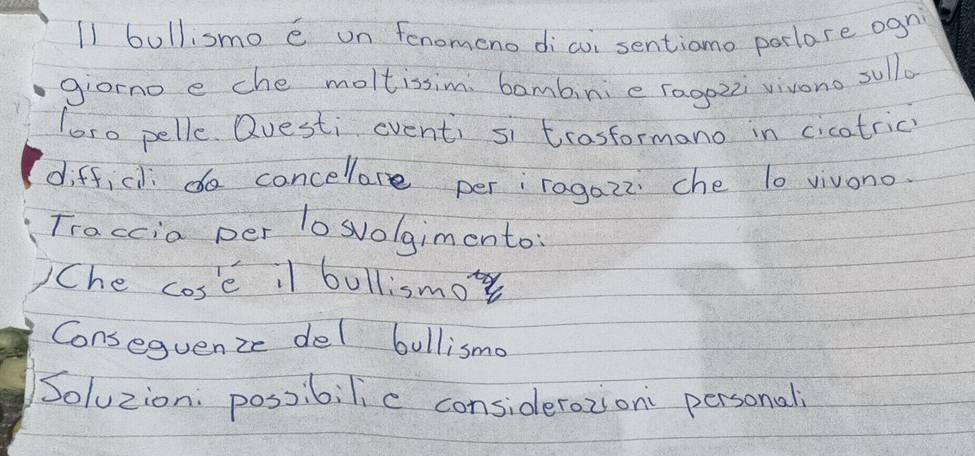 Il bullismo é un fenomeno di cui sentiamo parlare ogni
giorno e che moltissimi bambini e ragazzi vivono sulla
loro pelle. Questi eventi si trasformano in cicatrici
difficili da cancellare per i ragazzi che lo vivono.
Traccia per lo svolgimento:
Che cos'é il bullismo
Conseguenze del bullismo
Soluzioni possibili e considerazioni personali